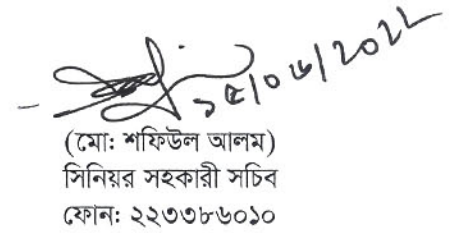 ১৫/০৬/2022
(মো: শফিউল আলম)
সিনিয়র সহকারী সচিব
ফোন: ২২৩৩৮৬০১০